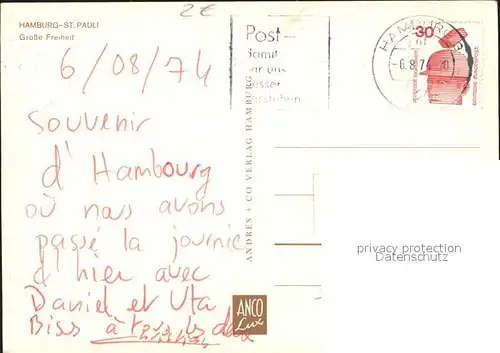 HAMBURG-ST. PAULI
Große Freiheit
2€
6/08/74
Post-
damit
wir uns
besser
verstehen
HAMBURG
-6.8.74
30
DEUTSCHE BUNDESPOST
souvenir
d'Hambourg
où nous avons
passé la journée
d'hier avec
Daniel et Uta
Biss à
ANDRES + CO VERLAG HAMBURG
ANCO
Lux
privacy protection
Datenschutz